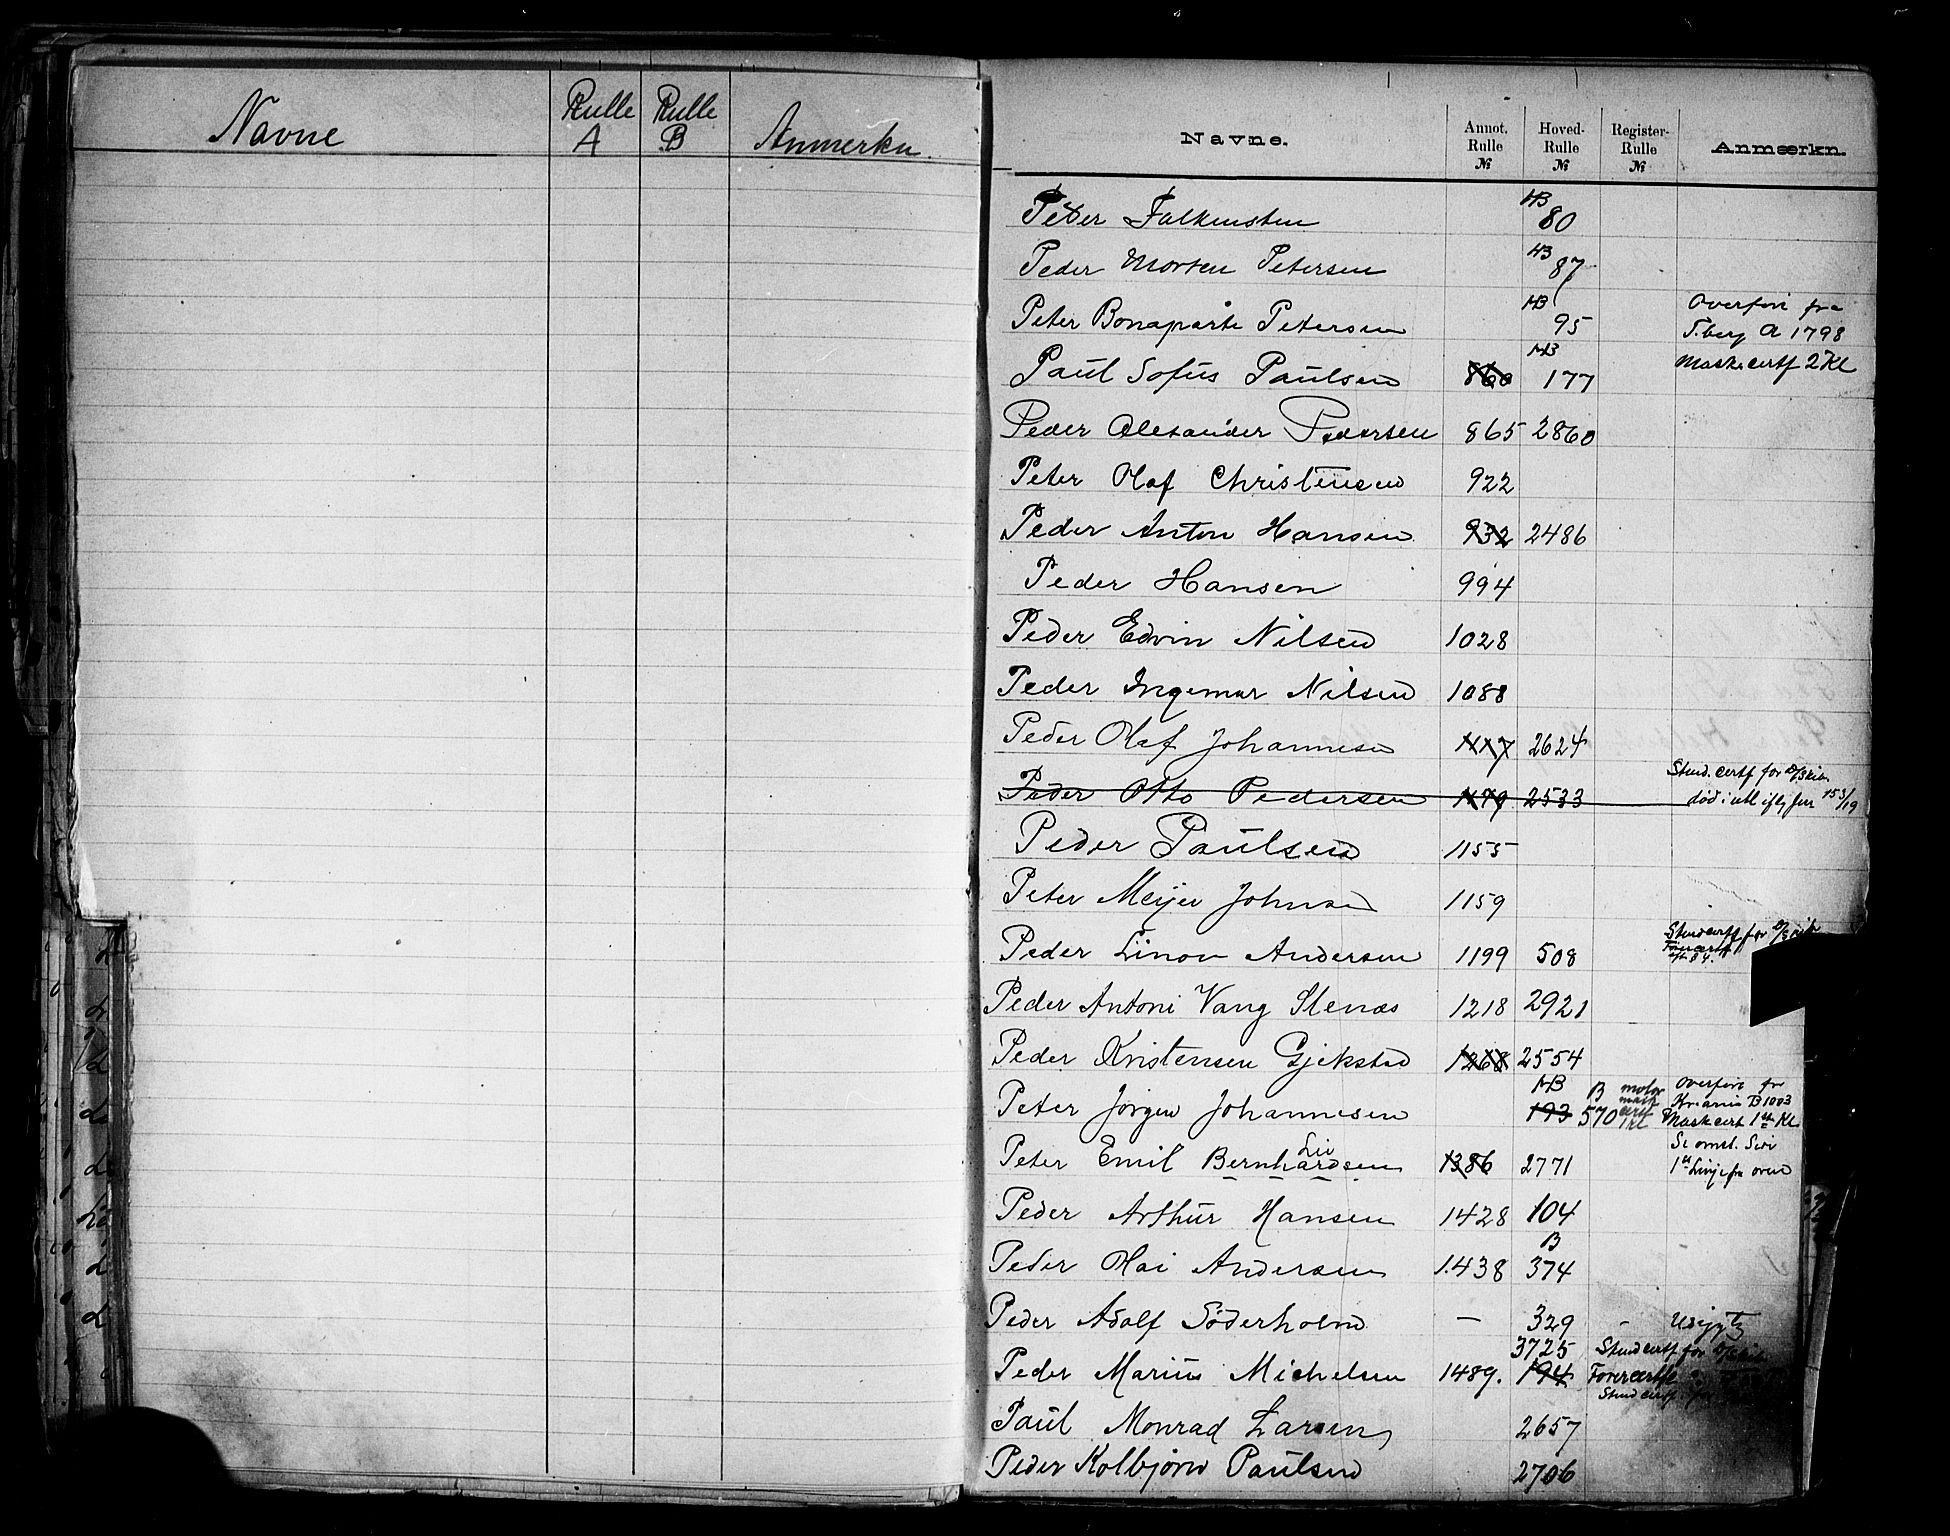 Navne Rulle A Rulle B Anmerkn.
Navne. Annot. Rulle № Hoved- Rulle № Register- Rulle № Anmærkn.
Peder Falkensten HB 80
Peder Morten Petersen HB 87
Peter Bonaparte Petersen HB 95 Overført fra T.berg A 1798
Paul Sofus Paulsen 860 HB 177 Mask. certf 2 Kl
Peder Alexander Pedersen 865 2860
Peter Olaf Christensen 922
Peder Anton Hansen 932 2486
Peder Hansen 994
Peder Edvin Nilsen 1028
Peder Ingemar Nilsen 1088
Peder Olaf Johannesen 1117 2624
Peder Otto Pedersen 1179 2533 Stud. certf for
Peder Paulsen 1155
Peter Meyer Johnsen 1159
Peder Linov Andersen 1199 508
Peder Antoni Vang Stenæs 1218 2921
Peder Kristensen Gjekstad 1268 2554
Peter Jørgen Johannesen HB 193 B 570 motor mask certf 1 kl Overført fra Kr.ania B 1003 Mask cert 1ste Kl
Peter Emil Bernhardsen Liv 1386 2771
Peder Arthur Hansen 1428 104
Peder Olai Andersen 1438 B 374
Peder Adolf Söderholm — 329 -
Peder Marius Michelsen 1489. 3725 194 Studcertf for Førercertf
Paul Monrad Larsen 2657
Peder Kolbjørn Paulsen 2706